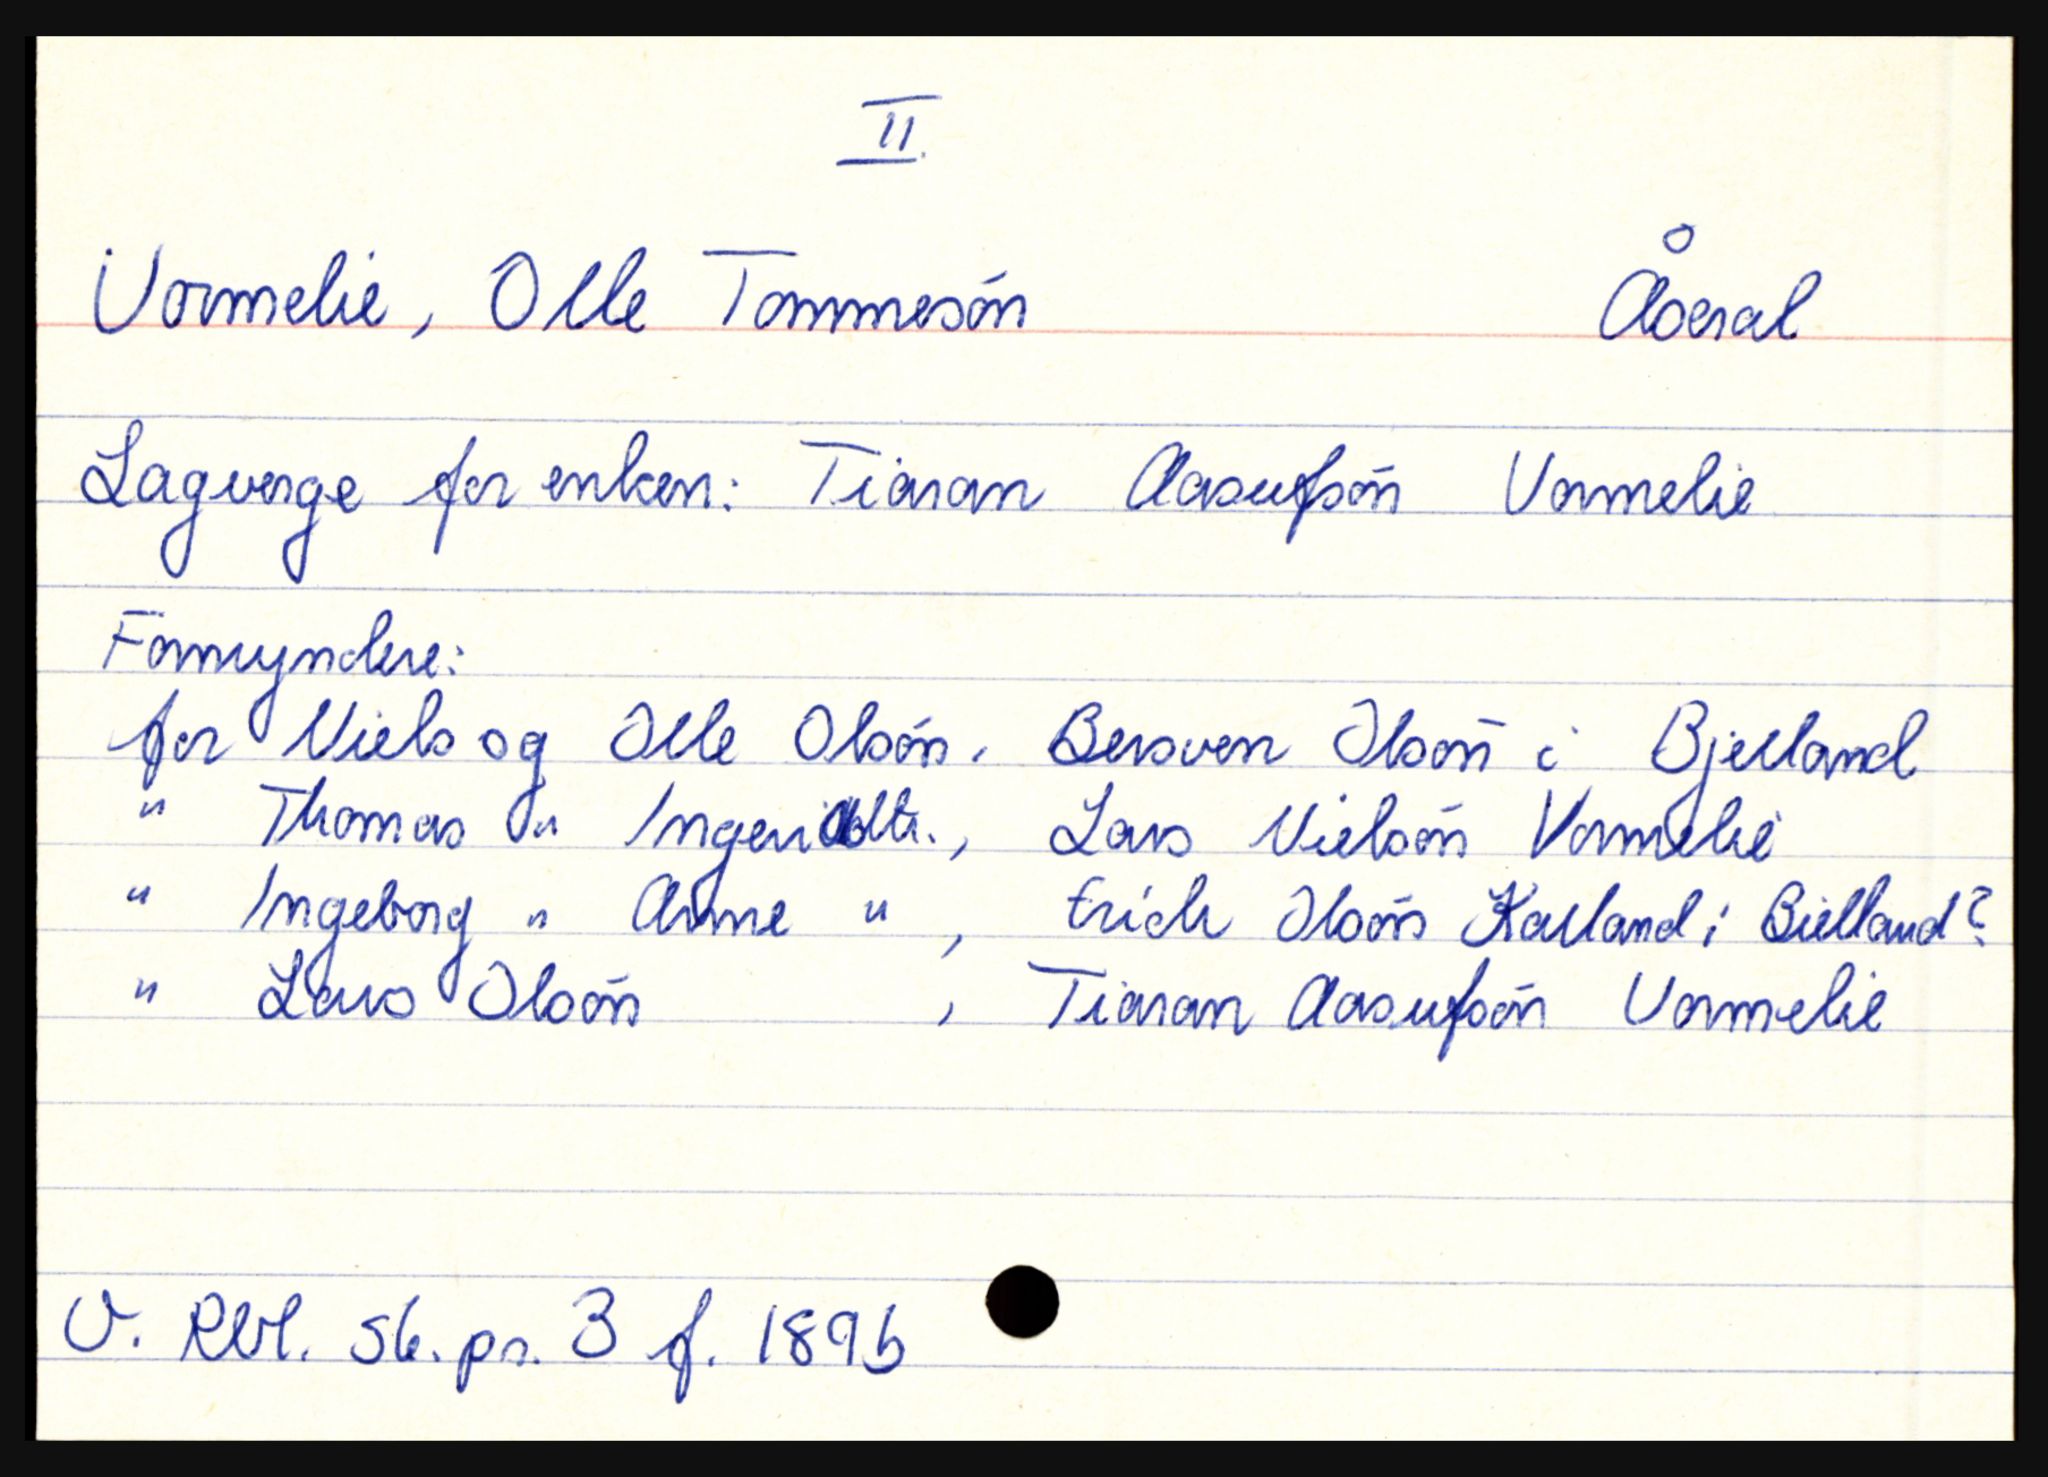 II.
Vormelie, Olle Tommesón
Åseral
Lagverge for enken: Tiaran Aasufsón Vormelie
Formyndere:
for Niels og Olle Olsón. Bersven Olsón i Bjelland
" Thomas " Ingeri Oldtr., Lars Nielsón Vormelie
" Ingeborg " Anne " , Erich Olsón Kalland i Bielland?
" Lars Olsón , Tiaran Aasufsón Vormelie
V. Rbl. sk. pr. 3 f. 189b